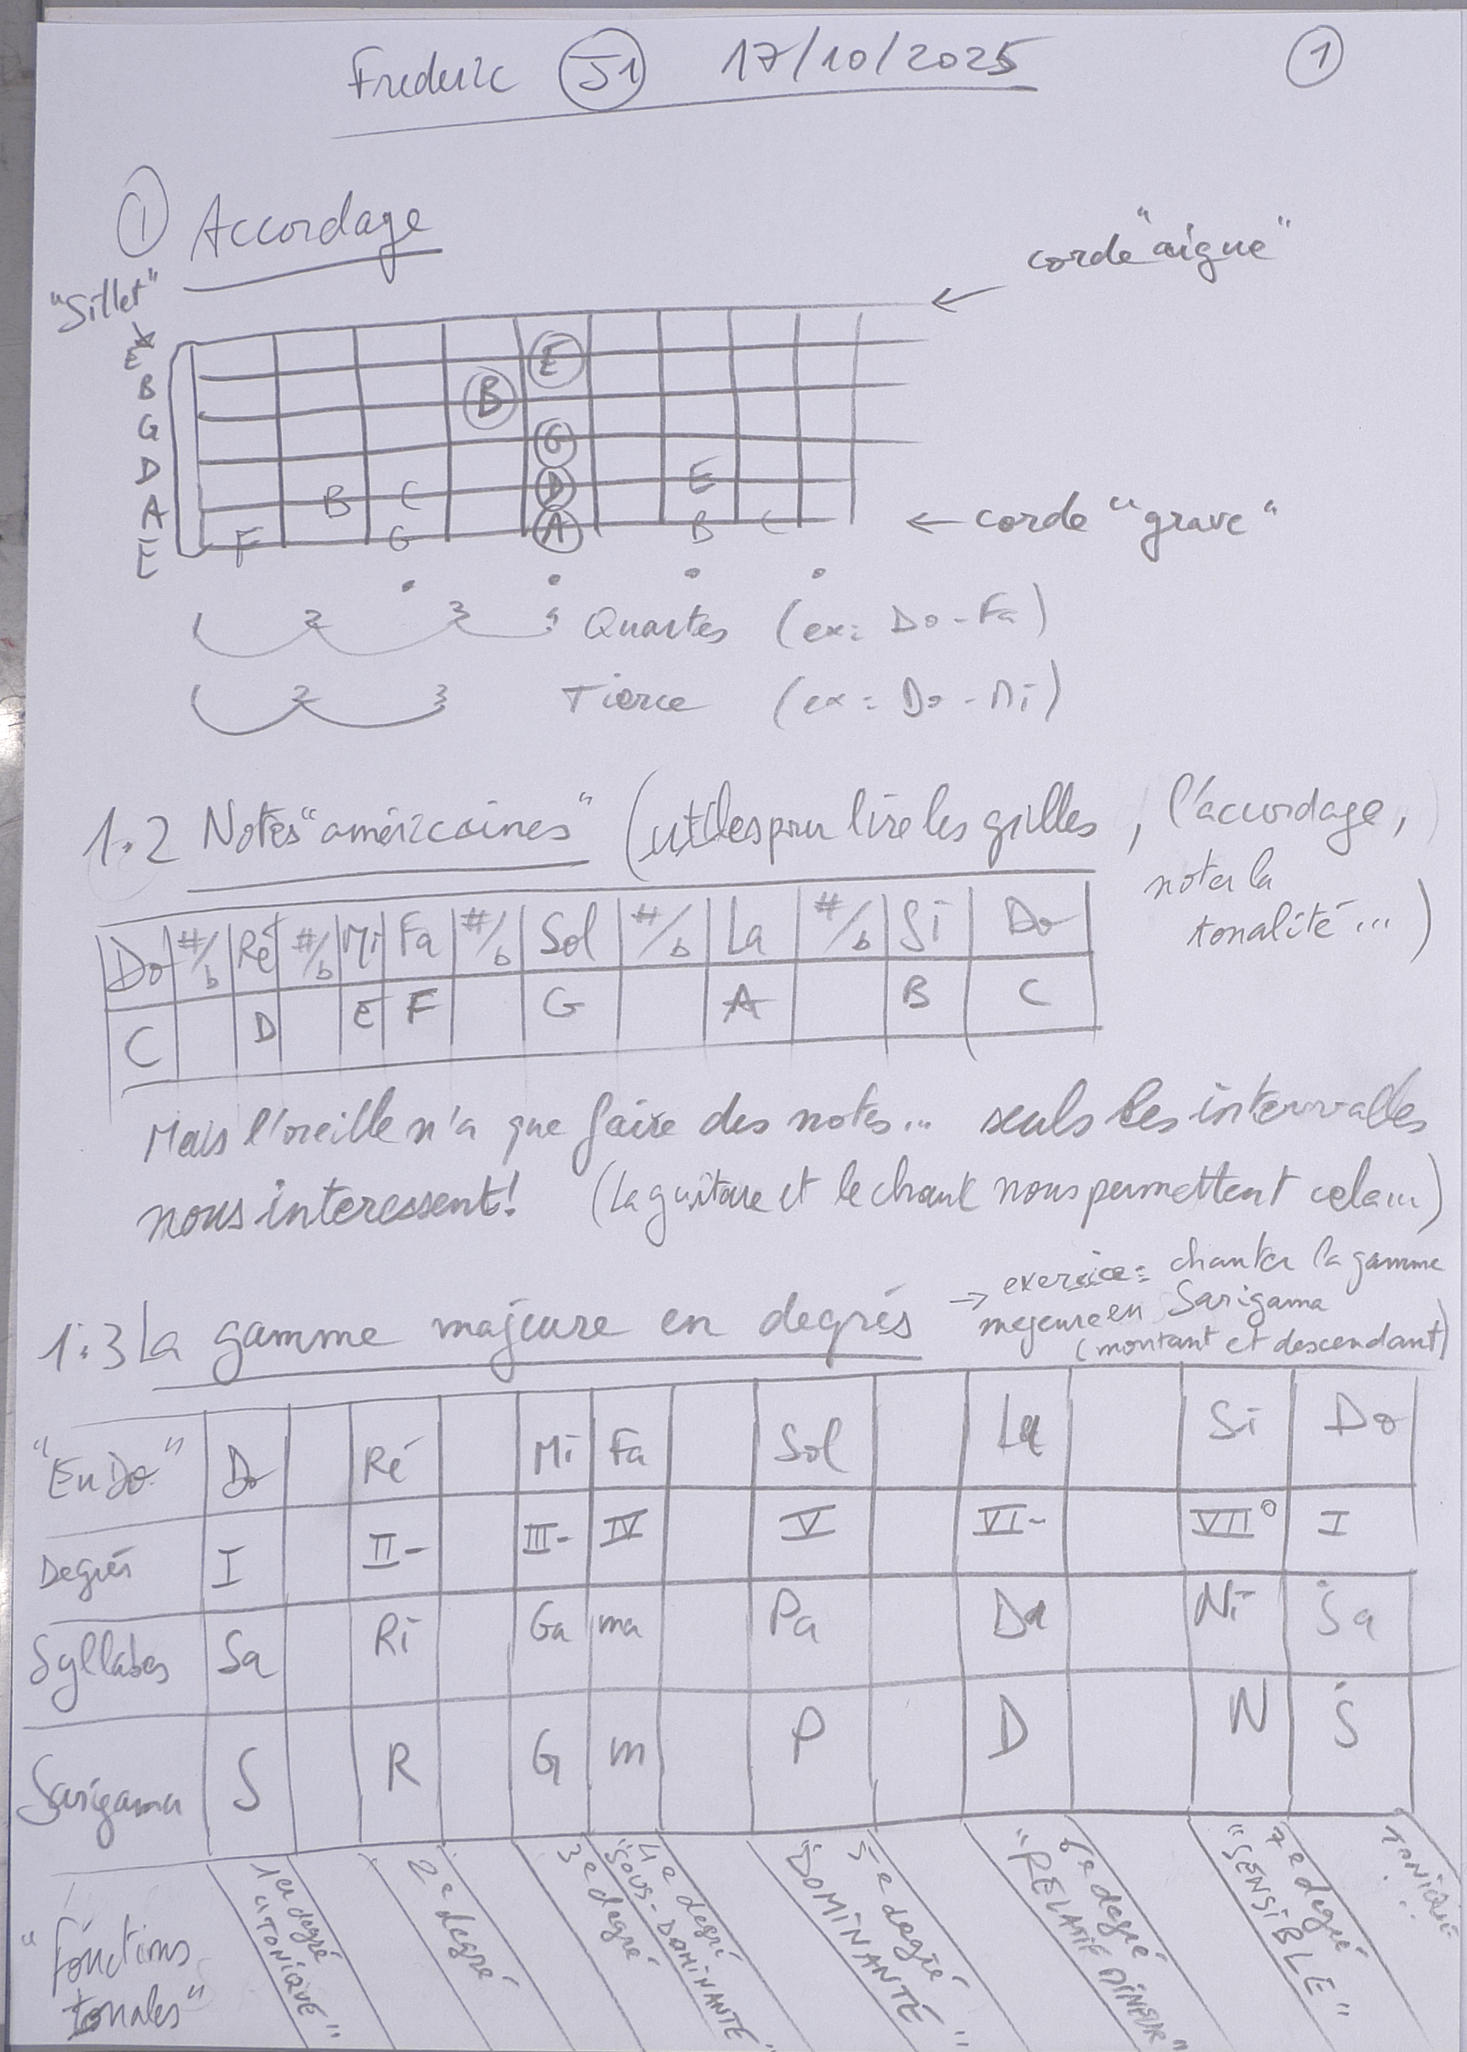 Frederic J1 17/10/2025 1
1 Accordage
"Sillet"
corde "aigue"
E
B
G
D
A
E
E
B
G
B C D E
F G A B C
← corde "grave"
2 3 4 Quartes (ex: Do-Fa)
2 3 Tierce (ex: Do-Mi)
1.2 Notes "américaines" (utiles pour lire les grilles, l'accordage,
noter la
tonalité...)
Do #/b Ré #/b Mi Fa #/b Sol #/b La #/b Si Do
C D E F G A B C
Mais l'oreille n'a que faire des notes... seuls les intervalles
nous interessent! (la guitare et le chant nous permettent cela...)
1.3 La gamme majeure en degrés → exercice: chanter la gamme
majeure en Sarigama
(montant et descendant)
"En Do" Do Ré Mi Fa Sol La Si Do
Degrés I II- III- IV V VI- VII° I
Syllabes Sa Ri Ga ma Pa Da Ni Ṡa
Sarigama S R G m P D N Ṡ
"Fonctions
tonales"
1er degré
"TONIQUE"
2e degré
3e degré
4e degré
"SOUS-DOMINANTE"
5e degré
"DOMINANTE"
6e degré
"RELATIF MINEUR"
7e degré
"SENSIBLE"
TONIQUE